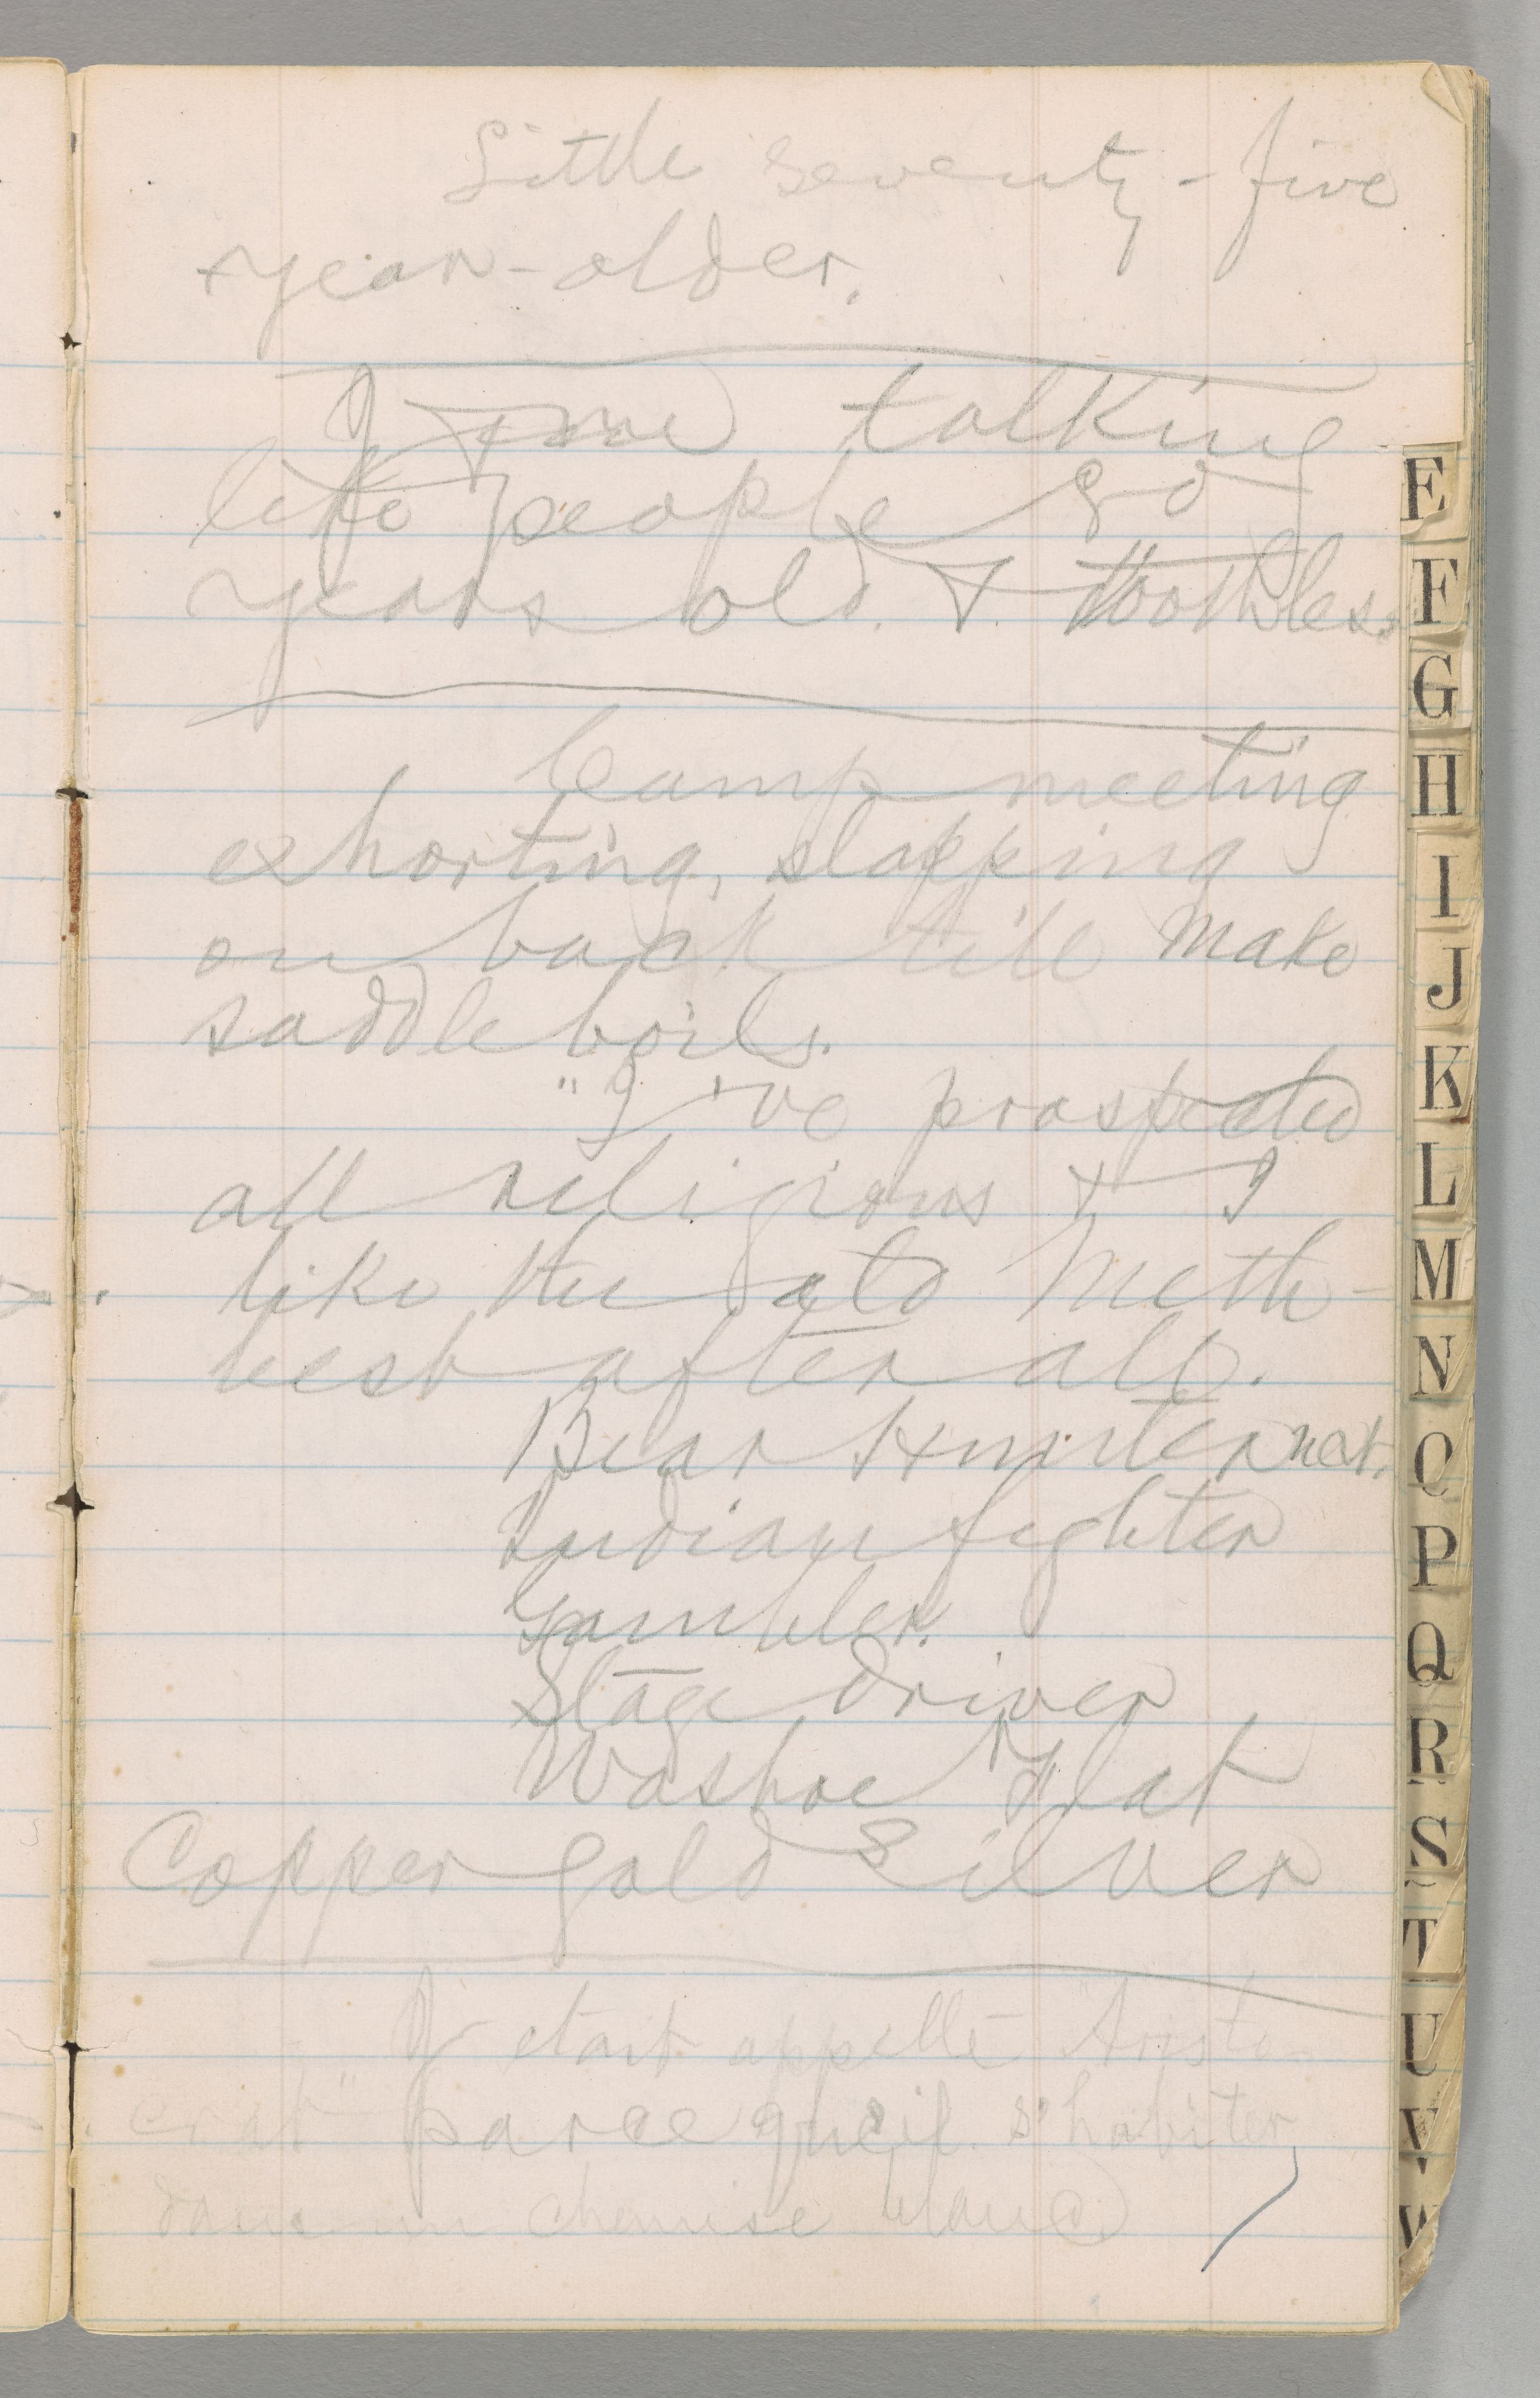 Little seventy-five
year-older.
Jo talking
like people 80
years old. & toothless
Camp meeting
exhorting, slapping
on back till make
saddle boils.
"I've prospected
all religions & I
like the old Meth-
best after all.
Bear Hunter nat.
Indian fighter
Gambler.
Stage driver
Washoe Flat
Copper Gold Silver
Il etait appellé "Aristo-
crat" parce que il s'habiter
dans un chemise blanc
E
F
G
H
I
J
K
L
M
N
O
P
Q
R
S
T
U
V
W